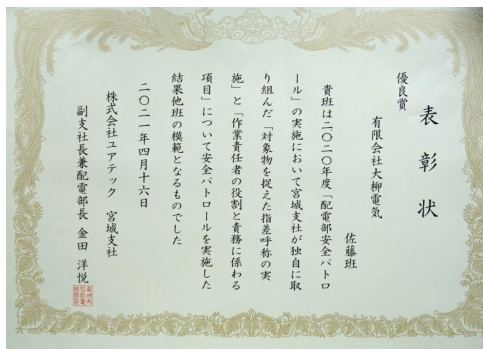 表彰状
優良賞
有限会社大柳電気
佐藤班
貴班は二〇二〇年度「配電部安全パトロ
ール」の実施において宮城支社が独自に取
り組んだ「対象物を捉えた指差呼称の実
施」と「作業責任者の役割と責務に係わる
項目」について安全パトロールを実施した
結果他班の模範となるものでした
二〇二一年四月十六日
株式会社ユアテック 宮城支社
副支社長兼配電部長 金田 洋悦